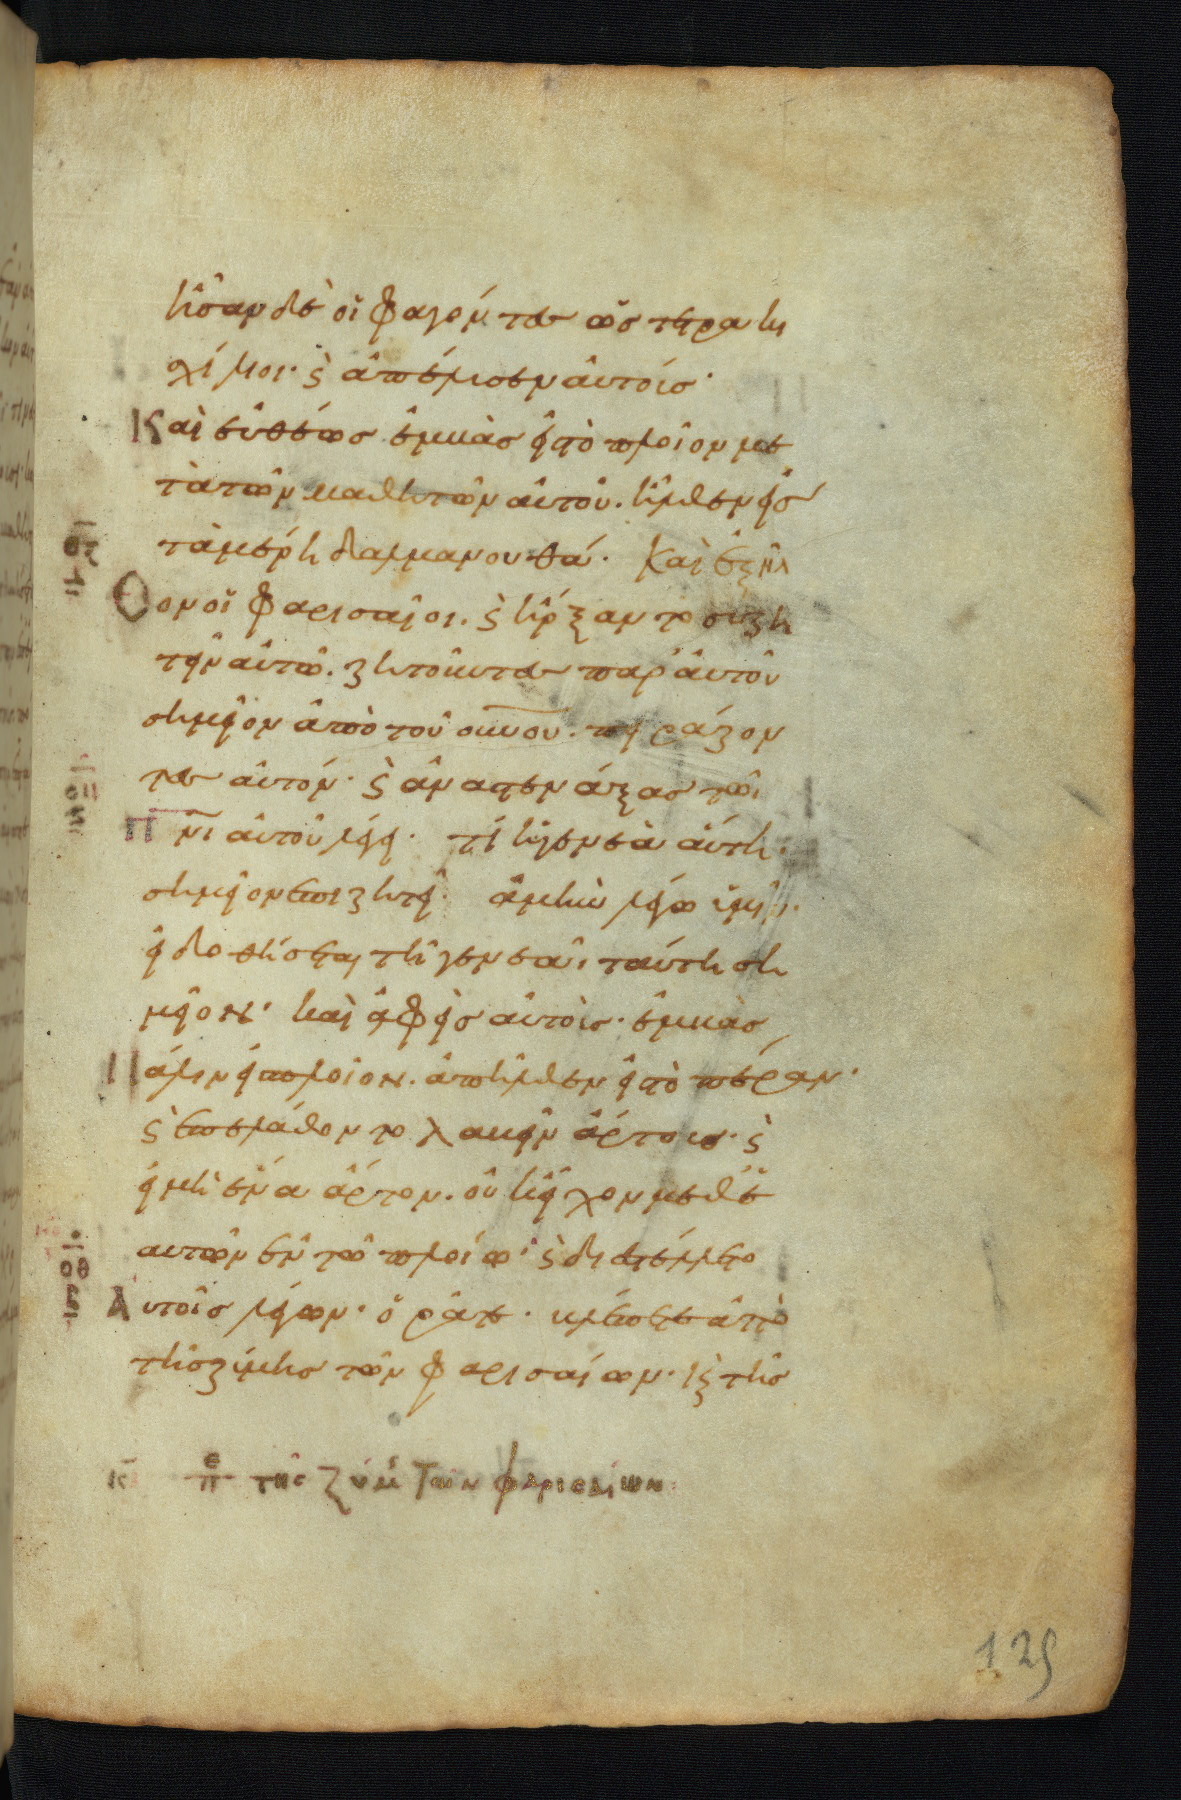 ἦσαν δὲ οἱ φαγόντες ὡς τετρακι
χίλιοι· ϗ ἀπέλυσεν αὐτούς·
Καὶ εὐθέως ἐμβὰς εἰς τὸ πλοῖον με
τὰ τῶν μαθητῶν αὐτοῦ. ἦλθεν εἰς
τὰ μέρη δαλμανουθά· Καὶ ἐξῆλ
θον οἱ φαρισαῖοι. ϗ ἤρξαντο συζη
τεῖν αὐτῶ. ζητοῦντες παρ' αὐτοῦ
σημεῖον ἀπὸ τοῦ οὐνου. πειράζον
τες αὐτόν· ϗ ἀναστενάξας τῶι
πνι αὐτοῦ λέγει· τί ἡ γενεὰ αὕτη·
σημεῖον ἐπιζητεῖ· ἀμὴν λέγω ὑμῖν·
εἰ δοθήσεται τῆ γενεᾶι ταύτη ση
μεῖον· καὶ ἀφεὶς αὐτοὺς· ἐμβὰς
Πάλιν εἰς πλοῖον. ἀπῆλθεν εἰς τὸ πέραν·
ϗ ἐπελάθοντο λαβεῖν ἄρτους· ϗ
εἰ μὴ ἕνα ἄρτον. οὐκ εἶχον μεθ' ἑ
αυτῶν ἐν τῶ πλοίω· ϗ διεστέλλετο
Αὐτοῖς λέγων· ὁρᾶτε· βλέπετε ἀπὸ
τῆς ζύμης τῶν φαρισαίων· ϗ τῆς
κ πε τῆς ζύμ τῶν φαρισαίων
125